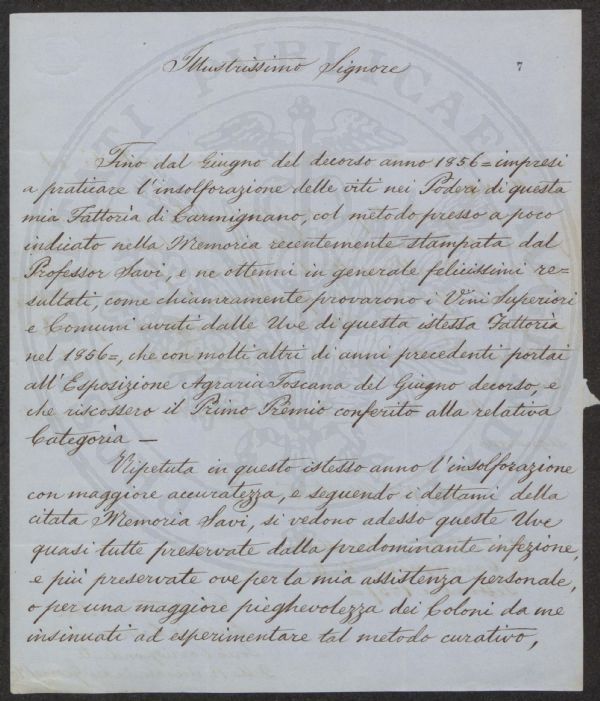 Illustrissimo Signore
7
Fino dal Giugno del decorso anno 1856= impresi
a praticare l'insolforazione delle viti nei Poderi di questa
mia Fattoria di Carmignano, col metodo presso a poco
indicato nella Memoria recentemente stampata dal
Professor Savi, e ne ottenni in generale felicissimi re=
sultati, come chiaramente provarono i Vini Superiori
e Comuni avuti dalle Uve di questa istessa Fattoria
nel 1856=, che con molti altri di anni precedenti portai
all'Esposizione Agraria Toscana del Giugno decorso, e
che riscossero il Primo Premio conferito alla relativa
Categoria —
Ripetuta in questo istesso anno l'insolforazione
con maggiore accuratezza, e seguendo i dettami della
citata Memoria Savi, si vedono adesso queste Uve
quasi tutte preservate dalla predominante infezione,
e più preservate ove per la mia assistenza personale,
o per una maggiore pieghevolezza dei Coloni da me
insinuati ad esperimentare tal metodo curativo,